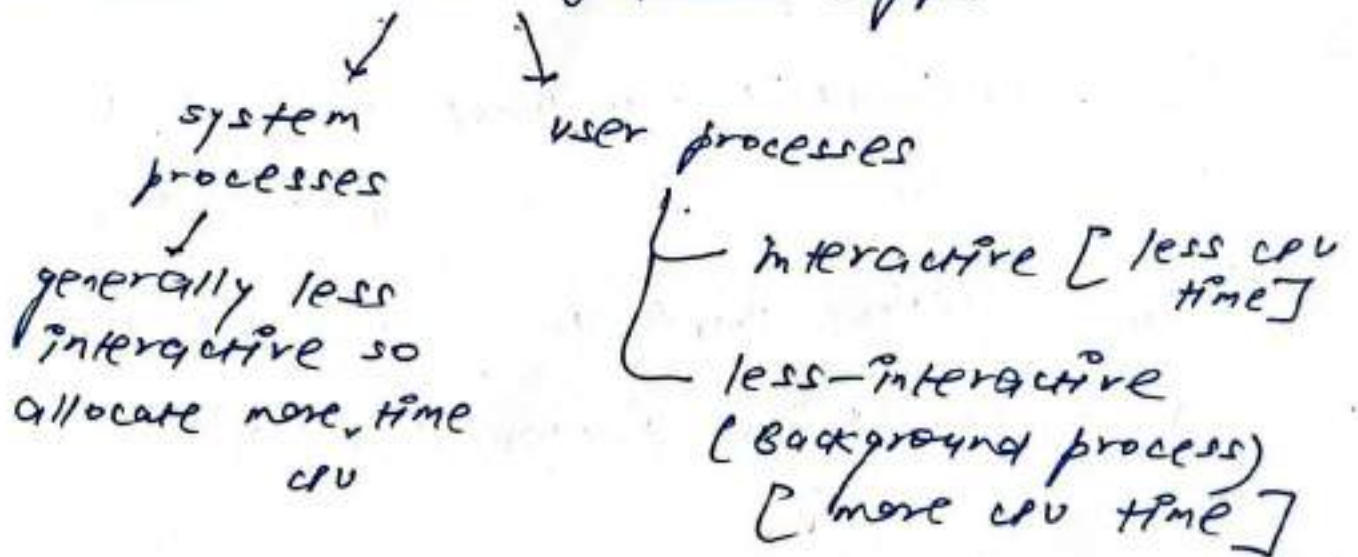 system
processes
generally less
interactive so
allocate more time
cpu
user processes
interactive [ less cpu
time]
less-interactive
(Background process)
[ more cpu time ]